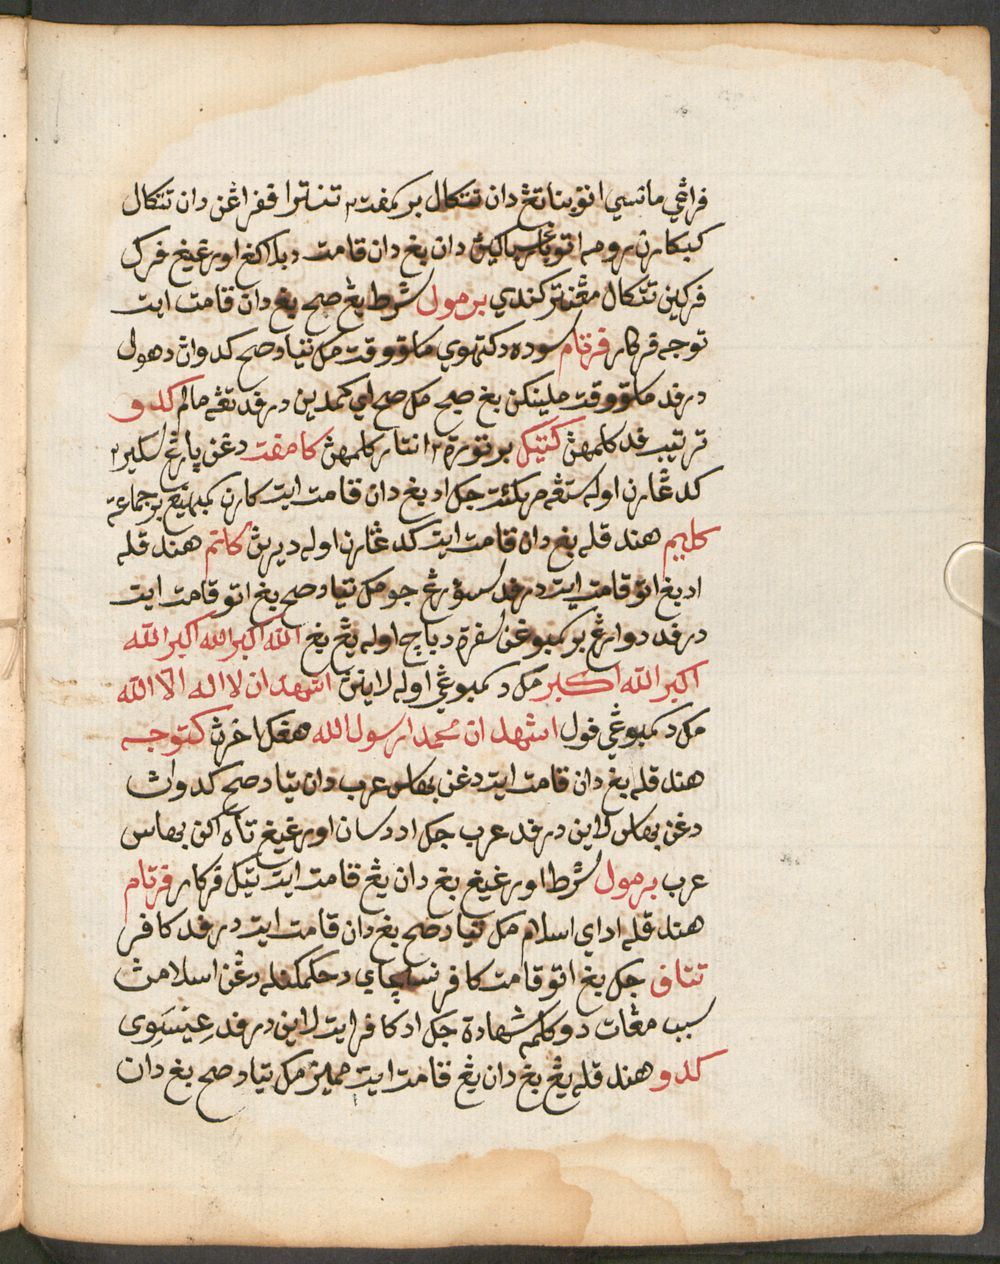 فراڠي ماتسي اتو بناتڠ دان تتكال بركمفت٢ تنترا ففراڠن دان تتكال
كبكارن رومه اتو دان بڠ دان قامت دبلاكڠ اورڠيڠ فرݢي
فركين تتكال مڠنتركندي برمول شرط بڠ صح بڠ دان قامت ايت
توجه فركار فرتام سوده دكتهوي ماسق وقت مك تياد صح كدوان دهولو
درفد ماسق وقت ملينكن بڠ صبح مك صح اي كمدين درفد تڠه مالم كدو
ترتيب فد كلمهڽ كتيݢ برتورة٢ انتار كلمهڽ كامفت دڠن ياريڠ سكير٢
كدڠارن اوله ستڠه مريكئت جك اد بڠ دان قامت ايت كارن سمبهيڠ برجماعه
كليم هندقله بڠ دان قامت ايت كدڠارن اوله ديريڽ كانم هندقله
اد بڠ اتو قامت ايت درفد سؤرڠ جو مك تياد صح بڠ اتو قامت ايت
درفد دوارڠ بركمبوڠن سفرة دباچ اوله يڠ بڠ الله اكبر الله اكبر الله
اكبر الله اكبر مك دسمبوڠي اوله لاينڽ اشهد ان لا اله الا الله
مك دسمبوڠي فول اشهد ان محمدا رسول الله هڠݢ اخرڽ كتوجه
هندقله بڠ دان قامت ايت دڠن بهاس عرب دان تياد صح كدواڽ
دڠن بهاس لاين درفد عرب جك اد دسان اورڠيڠ تاه اكن بهاس
عرب برمول شرط اورڠيڠ بڠ دان يڠ قامت ايت تيݢ فركار فرتام
هندقله اد اي اسلام مك تياد صح بڠ دان قامت ايت درفد كافر
تتاف جك بڠ اتو قامت كافر نسچاي دحكمكنله دڠن اسلامڽ
سبب مڠات دو كلمه شهادة جك اد كافر ايت لاين درفد عيسوي
كدو هندقله يڠ بڠ دان يڠ قامت ايت مميز مك تياد صح بڠ دان